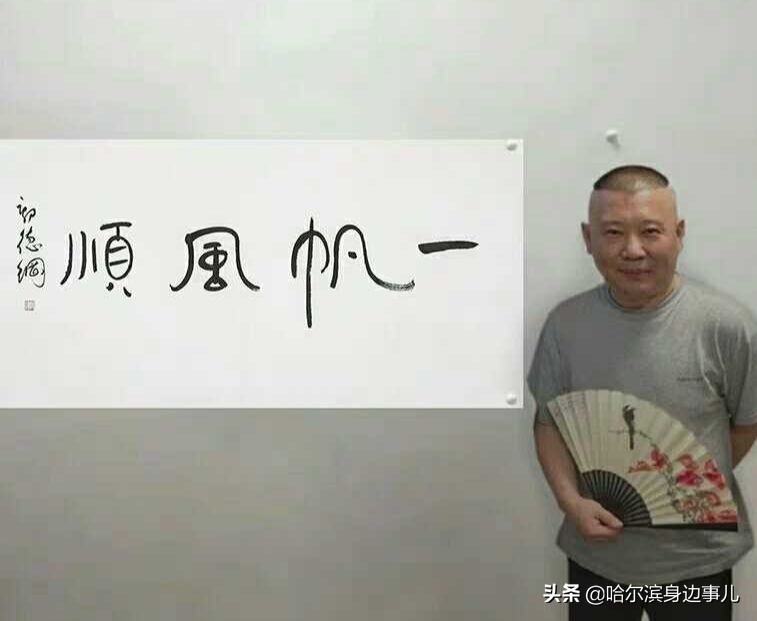 一帆風順
郭德綱
头条 @哈尔滨身边事儿